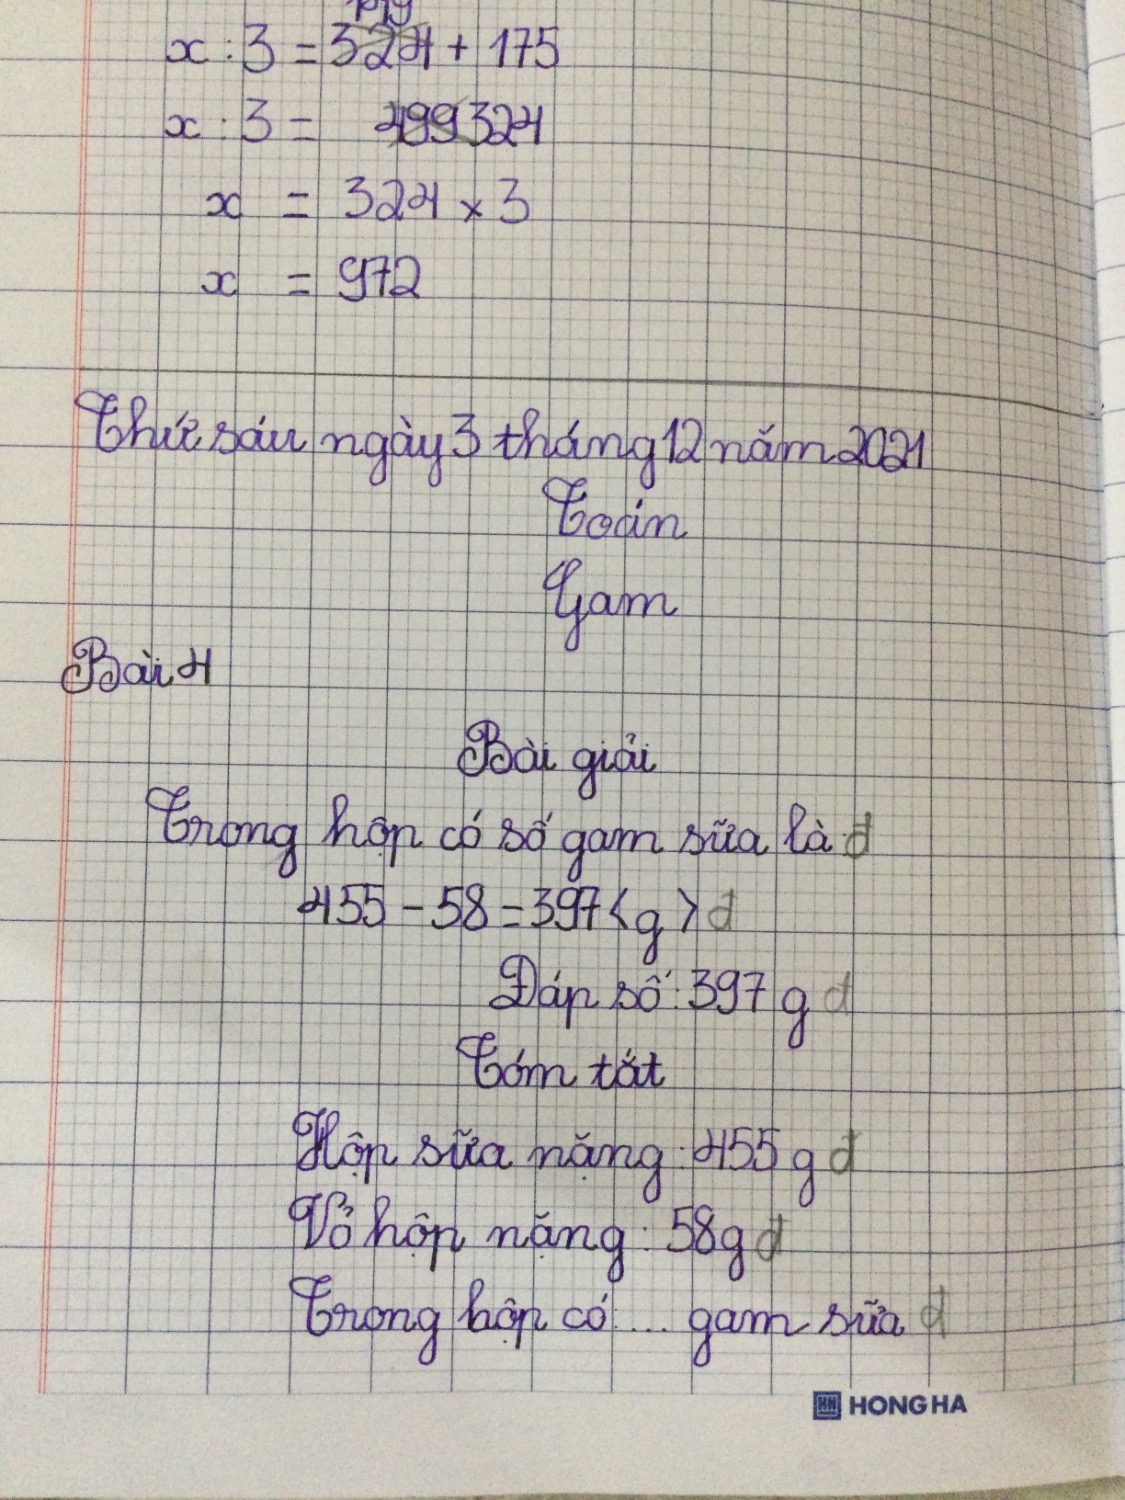 149
x : 3 = 324 + 175
x : 3 = 499 324
x = 324 × 3
x = 972
Thứ sáu ngày 3 tháng 12 năm 2021
Toán
Gam
Bài 4
Bài giải
Trong hộp có số gam sữa là đ
455 - 58 = 397 <g> đ
Đáp số: 397 g đ
Tóm tắt
Hộp sữa nặng: 455 g đ
Vỏ hộp nặng: 58g đ
Trong hộp có ... gam sữa đ
HONG HA